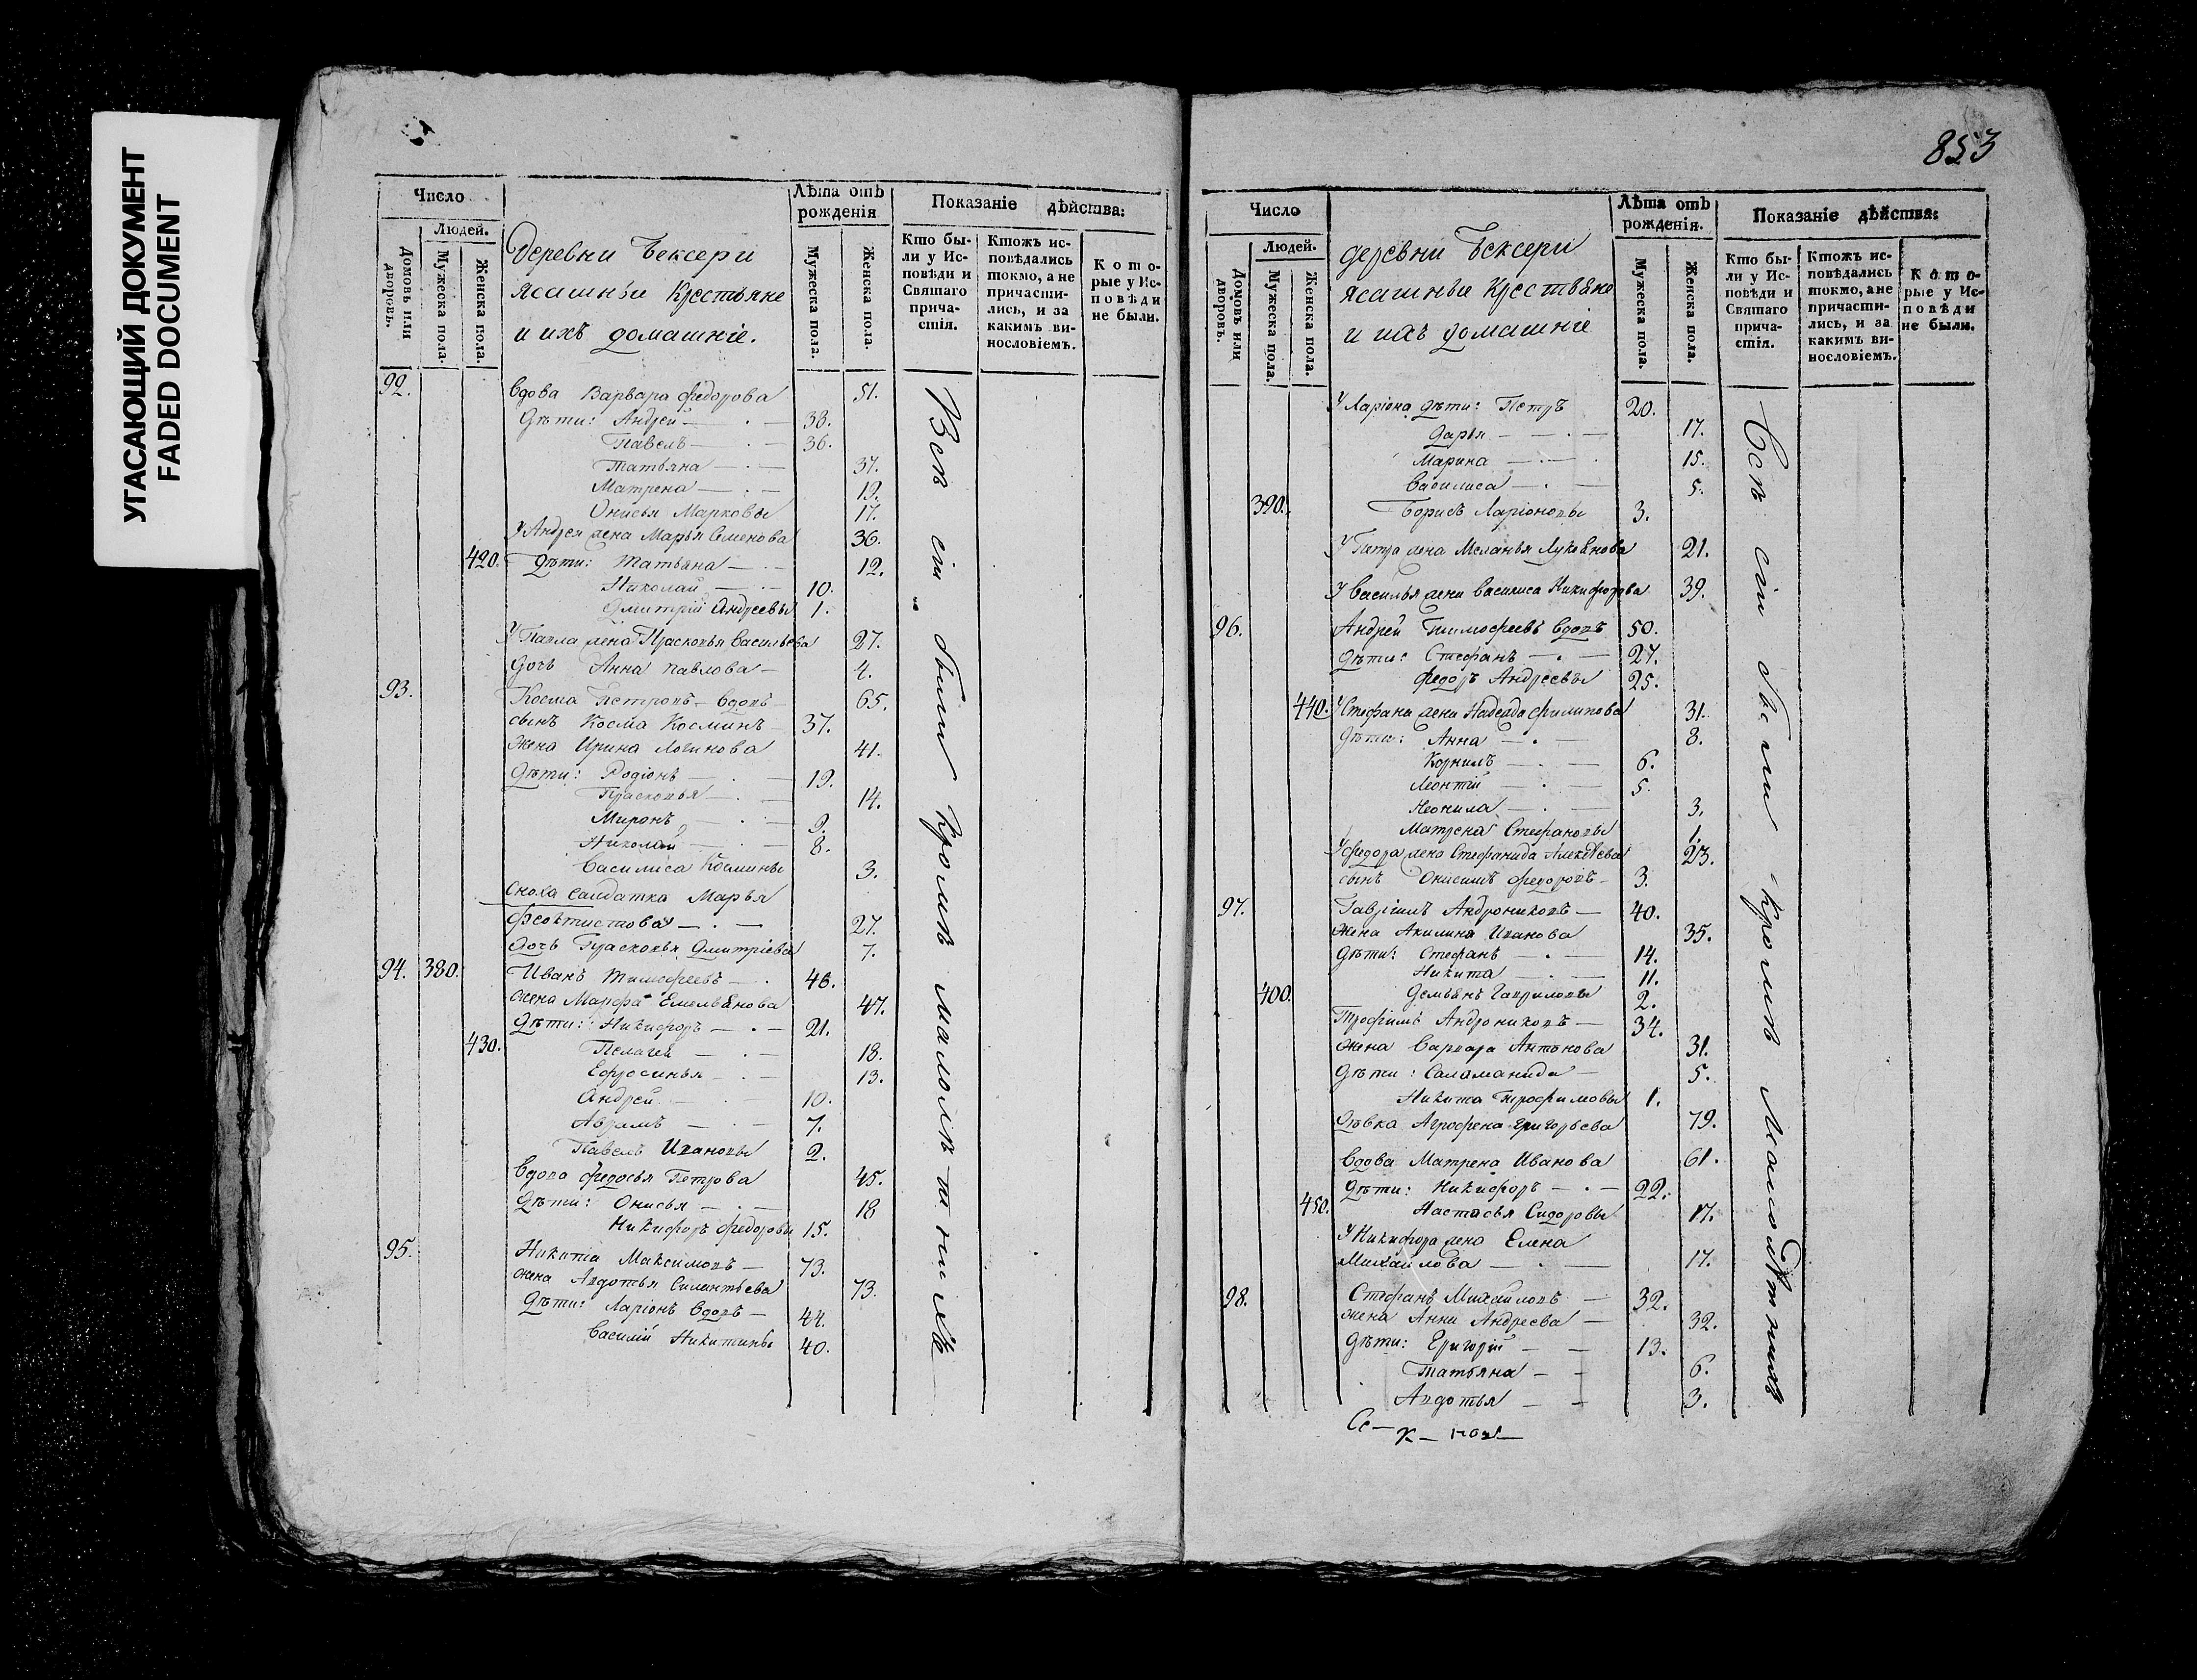 УГАСАЮЩИЙ ДОКУМЕНТ
FADED DOCUMENT
Число
Людей.
Домовъ или дворовъ.
Мужеска пола.
Женска пола.
Деревни Бексери
ясашныя крестьяне
и ихъ домашніе.
Лѣта отъ рожденія
Мужеска пола.
Женска пола.
Показаніе дѣйства:
Кто бы-
ли у Ис-
повѣди и
Святаго
прича-
стія.
Ктожъ ис-
повѣдались
токмо, а не
причасти-
лись, и за
какимъ ви-
нословіемъ.
Кото-
рые у Ис-
повѣди
не были.
92. Вдова Варвара Федорова 51.
Дѣти: Андрей 38.
Павелъ 36.
Татьяна 37.
Матрена 19.
Онисья Марковы 17.
У Андрея жена Марья Семенова 36.
420. Дѣти: Татьяна 12.
Николай 10.
Дмитрій Андреевы 1.
У Павла жена Прасковья Васильева 27.
Дочь Анна Павлова 4.
93. Косма Петровъ вдовъ 65.
сынъ Косма Косминъ 37.
жена Ирина Логинова 41.
Дѣти: Родіонъ 19.
Прасковья 14.
Миронъ 9.
Николай 8.
Василиса Космины 3.
Сноха салдатка Марья
Феоктистова 27.
Дочь Прасковья Дмитріева 7.
94. 380. Иванъ Тимофеевъ 46.
жена Марфа Емельянова 47.
Дѣти: Никифоръ 21.
430. Пелагея 18.
Ефросинья 13.
Андрей 10.
Аврамъ 7.
Павелъ Ивановы 2.
Вдова Федосья Петрова 45.
Дѣти: Онисья 18
Никифоръ Федоровы 15.
95. Никита Максимовъ 73.
жена Авдотья Силантьева 73.
Дѣти: Ларіонъ вдовъ 44.
Василій Никитины 40.
Всѣ сіи были кромѣ малолѣтнихъ
853
Число
Людей.
Домовъ или дворовъ.
Мужеска пола.
Женска пола.
деревни Бексери
ясашныя крестьяне
и ихъ домашніе
Лѣта отъ рожденія.
Мужеска пола.
Женска пола.
Показаніе дѣйства:
Кто бы-
ли у Ис-
повѣди и
Святаго
прича-
стія.
Ктожъ ис-
повѣдались
токмо, а не
причасти-
лись, и за
какимъ ви-
нословіемъ.
Кото-
рые у Ис-
повѣди
не были.
У Ларіона дѣти: Петръ 20.
Дарья 17.
Марина 15.
Василиса 5.
390. Борисъ Ларіоновы 3.
У Петра жена Меланья Лукоянова 21.
У Василья жена Василиса Никифорова 39.
96. Андрей Тимофеевъ вдовъ 50.
Дѣти: Стефанъ 27.
Федоръ Андреевы 25.
440. У Стефана жена Надежда Филипова 31.
Дѣти: Анна 8.
Корнилъ 6.
Леонтій 5.
Неонила 3.
Матрена Стефановы 1.
У Федора жена Стефанида Алексѣева 23.
сынъ Онисимъ Федоровъ 3.
97. Гавріилъ Андрониковъ 40.
жена Акилина Иванова 35.
Дѣти: Стефанъ 14.
Никита 11.
400. Демьянъ Гавриловы 2.
Трофимъ Андрониковъ 34.
жена Варвара Антонова 31.
Дѣти: Саламанида 5.
Никита Трофимовы 1.
Дѣвка Агрофена Григорьева 79.
Вдова Матрена Иванова 61.
Дѣти: Никифоръ 22.
450. Настасья Сидоровы 17.
У Никифора жена Елена
Михайлова 17.
98. Стефанъ Михайловъ 32.
жена Анна Андреева 32.
Дѣти: Григорій 13.
Татьяна 6.
Авдотья 3.
Всѣ сіи были кромѣ малолѣтнихъ